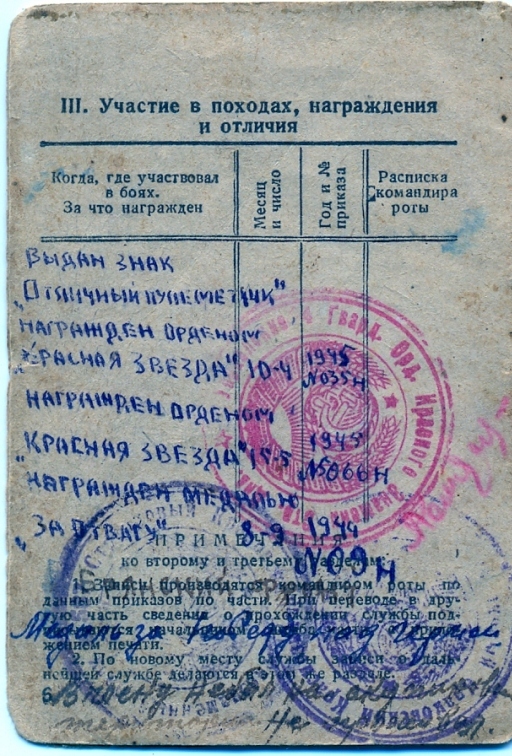 III. Участие в походах, награждения
и отличия
Когда, где участвовал
в боях.
За что награжден
Месяц
и число
Год и №
приказа
Расписка
командира
роты
ВЫДАН ЗНАК
„ОТЛИЧНЫЙ ПУЛЕМЕТЧИК"
НАГРАЖДЕН ОРДЕНОМ
„КРАСНАЯ ЗВЕЗДА" 10-4 1945 №035Н
НАГРАЖДЕН ОРДЕНОМ
„КРАСНАЯ ЗВЕЗДА" 15-5 1945 №066Н
НАГРАЖДЕН МЕДАЛЬЮ
„ЗА ОТВАГУ" 8-9 1944
№09Н
ПРИМЕЧАНИЯ
ко второму и третьему разделам
1. Записи производятся командиром роты по
данным приказов по части. При переводе в дру-
гую часть сведения о прохождении службы под-
жением печати.
2. По новому месту службы записи о даль-
нейшей службе делаются в этом же разделе.
Гвард. Орд. Красного
Медаль за Победу над
6 В плену не был на
территории не проживал.